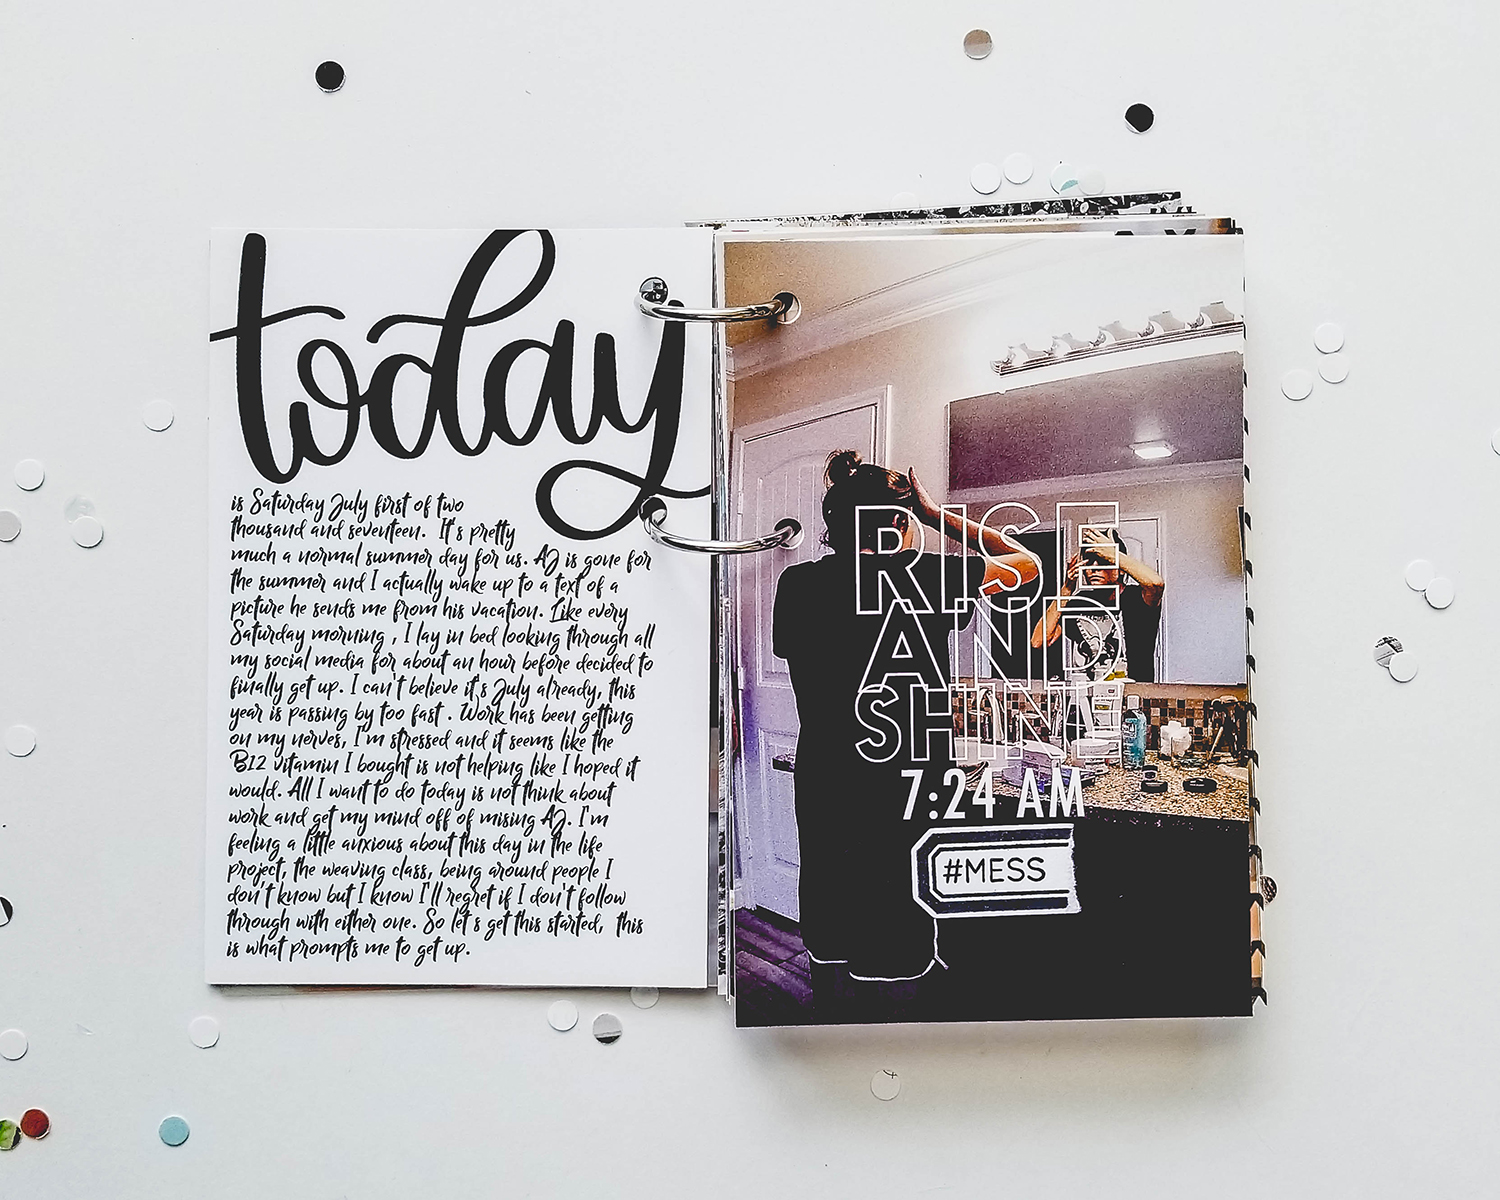 today
is Saturday July first of two
thousand and seventeen. It's pretty
much a normal summer day for us. AJ is gone for
the summer and I actually wake up to a text of a
picture he sends me from his vacation. Like every
Saturday morning , I lay in bed looking through all
my social media for about an hour before decided to
finally get up. I can't believe it's July already, this
year is passing by too fast . Work has been getting
on my nerves, I'm stressed and it seems like the
B12 vitamin I bought is not helping like I hoped it
would. All I want to do today is not think about
work and get my mind off of mising AJ. I'm
feeling a little anxious about this day in the life
project, the weaving class, being around people I
don't know but I know I'll regret if I don't follow
through with either one. So let's get this started, this
is what prompts me to get up.
RISE
AND
SHINE
7:24 AM
#MESS